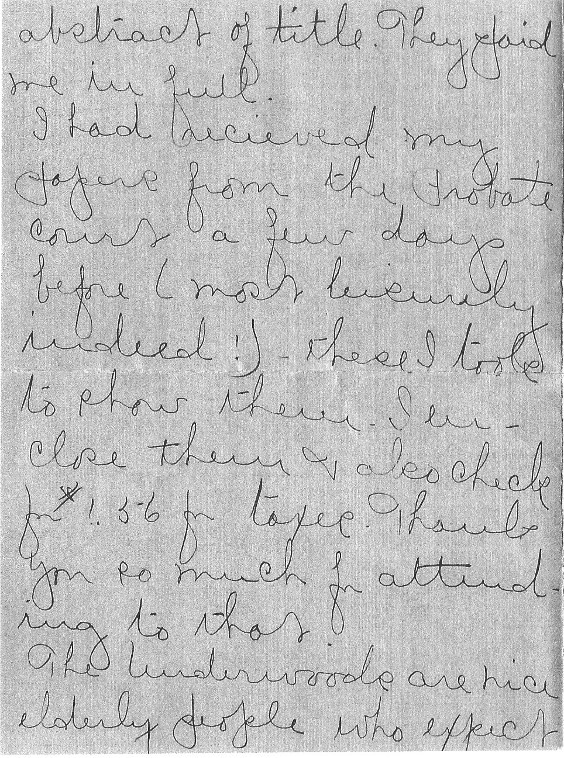 abstract of title. They paid
me in full.
I had recieved my
papers from the Probate
court a few days
before (most leisurely
indeed!) - these I took
to show them. I en-
close them & also check
for $1.56 for taxes. Thank
you so much for attend-
ing to that
The Underwoods are nice
elderly people who expect